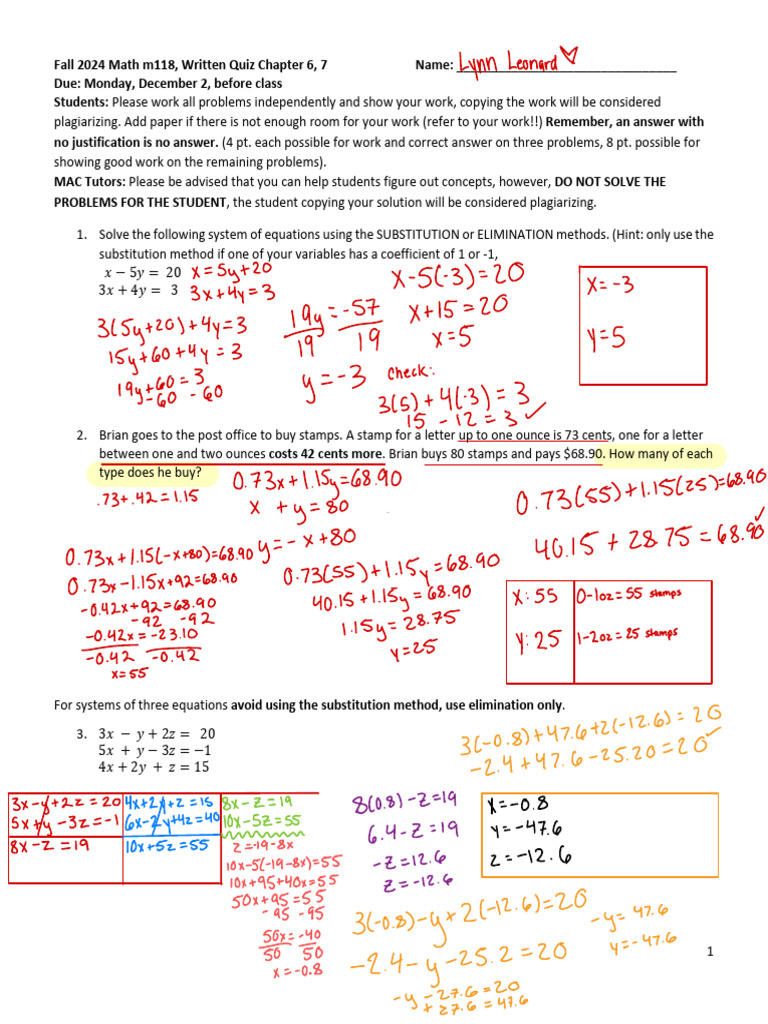 Fall 2024 Math m118, Written Quiz Chapter 6, 7 Name: Lynn Leonard
Due: Monday, December 2, before class
Students: Please work all problems independently and show your work, copying the work will be considered
plagiarizing. Add paper if there is not enough room for your work (refer to your work!!) Remember, an answer with
no justification is no answer. (4 pt. each possible for work and correct answer on three problems, 8 pt. possible for
showing good work on the remaining problems).
MAC Tutors: Please be advised that you can help students figure out concepts, however, DO NOT SOLVE THE
PROBLEMS FOR THE STUDENT, the student copying your solution will be considered plagiarizing.
1. Solve the following system of equations using the SUBSTITUTION or ELIMINATION methods. (Hint: only use the
substitution method if one of your variables has a coefficient of 1 or -1,
x − 5y = 20 x=5y+20
3x + 4y = 3 3x+4y=3
3(5y+20)+4y=3
15y+60+4y=3
19y+60=3
-60 -60
19y=-57
19 19
y=-3
x-5(-3)=20
x+15=20
x=5
check:
3(5)+4(-3)=3
15-12=3✓
x=-3
y=5
2. Brian goes to the post office to buy stamps. A stamp for a letter up to one ounce is 73 cents, one for a letter
between one and two ounces costs 42 cents more. Brian buys 80 stamps and pays $68.90. How many of each
type does he buy?
.73+.42=1.15
0.73x+1.15y=68.90
x+y=80
y=-x+80
0.73x+1.15(-x+80)=68.90
0.73x-1.15x+92=68.90
-0.42x+92=68.90
-92 -92
-0.42x=-23.10
-0.42 -0.42
x=55
0.73(55)+1.15y=68.90
40.15+1.15y=68.90
1.15y=28.75
y=25
0.73(55)+1.15(25)=68.90
40.15+28.75=68.90✓
x:55 0-1oz=55 stamps
y:25 1-2oz=25 stamps
For systems of three equations avoid using the substitution method, use elimination only.
3. 3x − y + 2z = 20
5x + y − 3z = −1
4x + 2y + z = 15
3(-0.8)+47.6+2(-12.6)=20
-2.4+47.6-25.20=20✓
3x-y+2z=20
5x+y-3z=-1
8x-z=19
4x+2y+z=15
6x-2y+4z=40
10x+5z=55
8x-z=19
10x-5z=55
z=-19-8x
10x-5(-19-8x)=55
10x+95+40x=55
50x+95=55
-95 -95
50x=-40
50 50
x=-0.8
8(0.8)-z=19
6.4-z=19
-z=12.6
z=-12.6
x=-0.8
y=-47.6
z=-12.6
3(-0.8)-y+2(-12.6)=20
-2.4-y-25.2=20
-y-27.6=20
+27.6=47.6
-y=47.6
y=-47.6
1